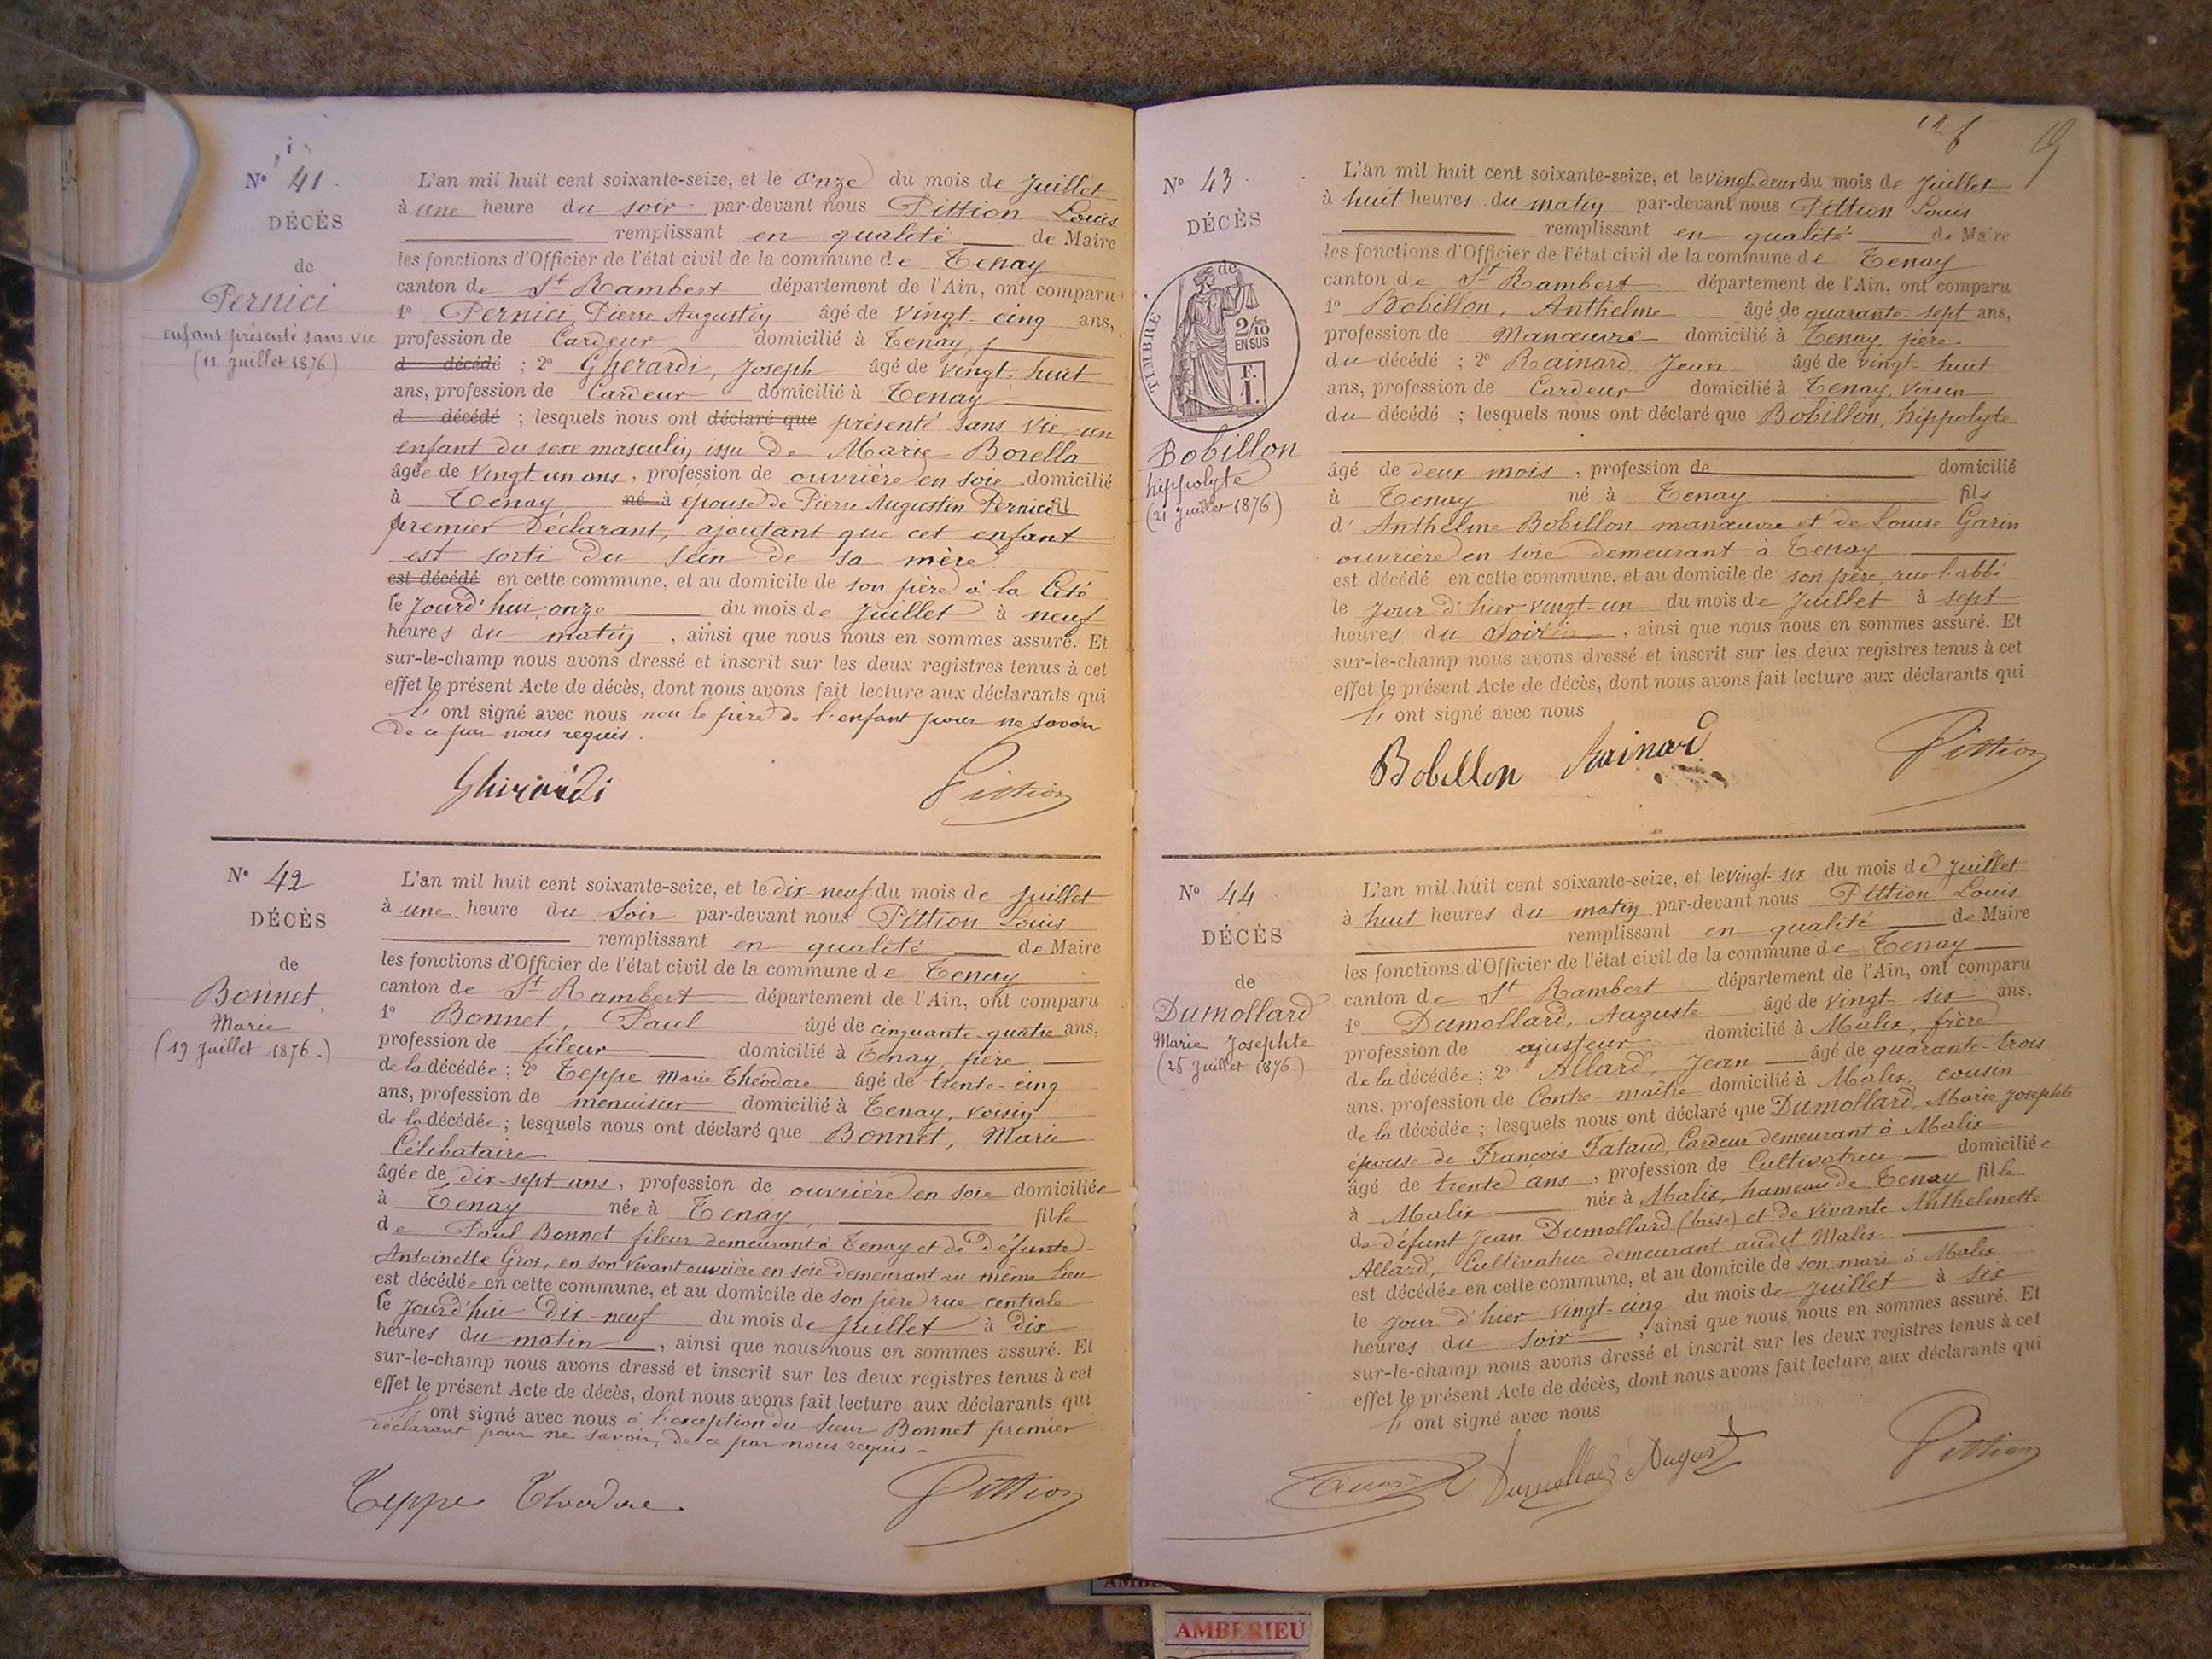 N° 41.
DÉCÈS
de
Pernici
enfant présenté sans vie
(11 Juillet 1876)
L'an mil huit cent soixante-seize, et le Onze du mois de Juillet
à une heure du soir par-devant nous Pittion Louis
remplissant en qualité de Maire
les fonctions d'Officier de l'état civil de la commune de Tenay
canton de St Rambert département de l'Ain, ont comparu
1° Pernici Pierre Augustin âgé de vingt-cinq ans,
profession de Cardeur domicilié à Tenay
d décédé ; 2° Gherardi, Joseph âgé de vingt-huit
ans, profession de Cardeur domicilié à Tenay
d décédé ; lesquels nous ont déclaré que présenté sans vie un
enfant du sexe masculin, issu de Marie Borella
âgée de vingt un ans, profession de ouvrière en soie domicilié
à Tenay né à épouse de Pierre Augustin Pernici fil
premier déclarant, ajoutant que cet enfant
est sorti du sein de sa mère
est décédé en cette commune, et au domicile de son père à la Cité
le jourd'hui onze du mois de Juillet à neuf
heures du matin, ainsi que nous nous en sommes assuré. Et
sur-le-champ nous avons dressé et inscrit sur les deux registres tenus à cet
effet le présent Acte de décès, dont nous avons fait lecture aux déclarants qui
l' ont signé avec nous non le père de l'enfant pour ne savoir
de ce par nous requis.
Ghirardi Pittion
N° 42
DÉCÈS
de
Bonnet,
Marie
(19 Juillet 1876.)
L'an mil huit cent soixante-seize, et le dix-neuf du mois de Juillet
à une heure du soir par-devant nous Pittion Louis
remplissant en qualité de Maire
les fonctions d'Officier de l'état civil de la commune de Tenay
canton de St Rambert département de l'Ain, ont comparu
1° Bonnet, Paul âgé de cinquante-quatre ans,
profession de fileur domicilié à Tenay, père
de la décédée ; 2° Teppe Marie Théodore âgé de trente-cinq
ans, profession de menuisier domicilié à Tenay, voisin
de la décédée ; lesquels nous ont déclaré que Bonnet, Marie
Célibataire
âgée de dix-sept ans, profession de ouvrière en soie domiciliée
à Tenay née à Tenay, fille
de Paul Bonnet fileur demeurant à Tenay et de défunte
Antoinette Gros, en son vivant ouvrière en soie demeurant au même lieu
est décédée en cette commune, et au domicile de son père rue centrale
le jourd'hui dix-neuf du mois de Juillet à dix
heures du matin, ainsi que nous nous en sommes assuré. Et
sur-le-champ nous avons dressé et inscrit sur les deux registres tenus à cet
effet le présent Acte de décès, dont nous avons fait lecture aux déclarants qui
l' ont signé avec nous à l'exception du sieur Bonnet premier
déclarant pour ne savoir, de ce par nous requis.
Teppe Théodore. Pittion
N° 43
DÉCÈS
de
TIMBRE
2/10
EN SUS
F.
1.
Bobillon
hippolyte
(21 Juillet 1876)
L'an mil huit cent soixante-seize, et le vingt-deux du mois de Juillet
à huit heures du matin par-devant nous Pittion Louis
remplissant en qualité de Maire
les fonctions d'Officier de l'état civil de la commune de Tenay
canton de St Rambert département de l'Ain, ont comparu
1° Bobillon, Anthelme âgé de quarante-sept ans,
profession de Manœuvre domicilié à Tenay, père
du décédé ; 2° Rainard, Jean âgé de vingt-huit
ans, profession de Cardeur domicilié à Tenay, voisin
du décédé ; lesquels nous ont déclaré que Bobillon, hippolyte
âgé de deux mois, profession de domicilié
à Tenay né à Tenay fils
d' Anthelme Bobillon manœuvre et de Louise Garin
ouvrière en soie demeurant à Tenay
est décédé en cette commune, et au domicile de son père, rue l'abbé
le jour d'hier vingt-un du mois de Juillet à sept
heures du soir, ainsi que nous nous en sommes assuré. Et
sur-le-champ nous avons dressé et inscrit sur les deux registres tenus à cet
effet le présent Acte de décès, dont nous avons fait lecture aux déclarants qui
l' ont signé avec nous
Bobillon Rainard Pittion
N° 44
DÉCÈS
de
Dumollard
Marie Josephte
(25 Juillet 1876)
L'an mil huit cent soixante-seize, et le vingt-six du mois de Juillet
à huit heures du matin par-devant nous Pittion Louis
remplissant en qualité de Maire
les fonctions d'Officier de l'état civil de la commune de Tenay
canton de St Rambert département de l'Ain, ont comparu
1° Dumollard, Auguste âgé de vingt-six ans,
profession de ajusteur domicilié à Malix, frère
de la décédée ; 2° Allard, Jean âgé de quarante-trois
ans, profession de Contre-maître domicilié à Malix, cousin
de la décédée ; lesquels nous ont déclaré que Dumollard, Marie Josephte
épouse de François Fataud, Cardeur demeurant à Malix
âgé de trente ans, profession de Cultivatrice domiciliée
à Malix née à Malix, hameau de Tenay fille
de défunt Jean Dumollard (brise) et de vivante Anthelmette
Allard, Cultivatrice demeurant audit Malix
est décédée en cette commune, et au domicile de son mari à Malix
le jour d'hier vingt-cinq du mois de Juillet à six
heures du soir, ainsi que nous nous en sommes assuré. Et
sur-le-champ nous avons dressé et inscrit sur les deux registres tenus à cet
effet le présent Acte de décès, dont nous avons fait lecture aux déclarants qui
l' ont signé avec nous
Dumollard August Pittion
AMBERIEU